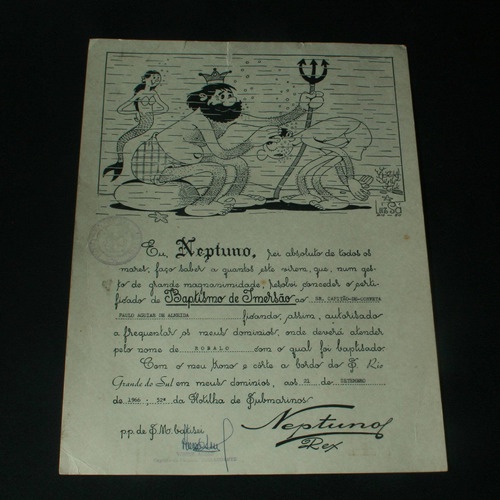 Eu, Neptuno, rei absoluto de todos os
mares, faço saber a quantos este virem, que, num ges-
to de grande magnanimidade, resolvi conceder o certi-
ficado de Baptismo de Imersão ao SR. CAPITÃO-DE-CORVETA
PAULO AGUIAR DE ALMEIDA ficando, assim, autorisado
a frequentar os meus dominios, onde deverá atender
pelo nome de ROBALO com o qual foi baptisado.
Com o meu trono e côrte a bordo do S. Rio
Grande do Sul em meus dominios, aos 21 de SETEMBRO
de 1966 - 52º da Flotilha de Submarinos
p.p. de S.M. batisei
Neptuno
Rex